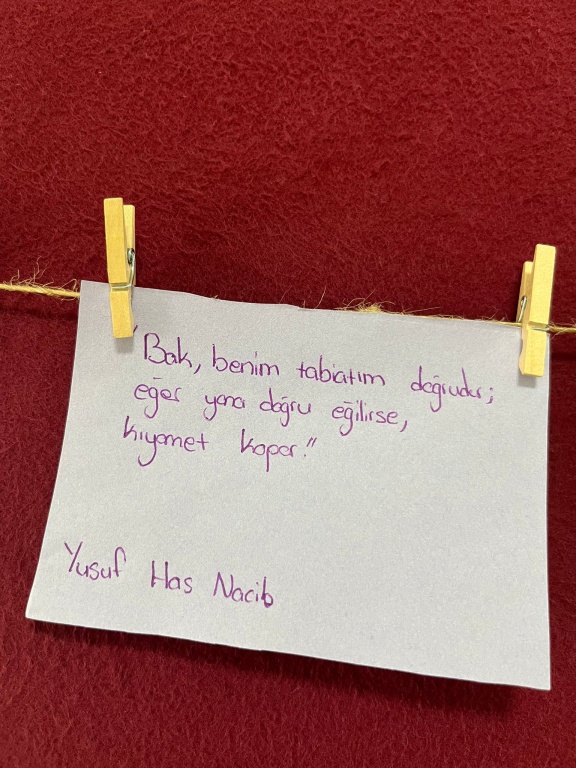 "Bak, benim tabiatım doğrudur;
eğer yana doğru eğilirse,
kıyamet kopar."
Yusuf Has Nacib